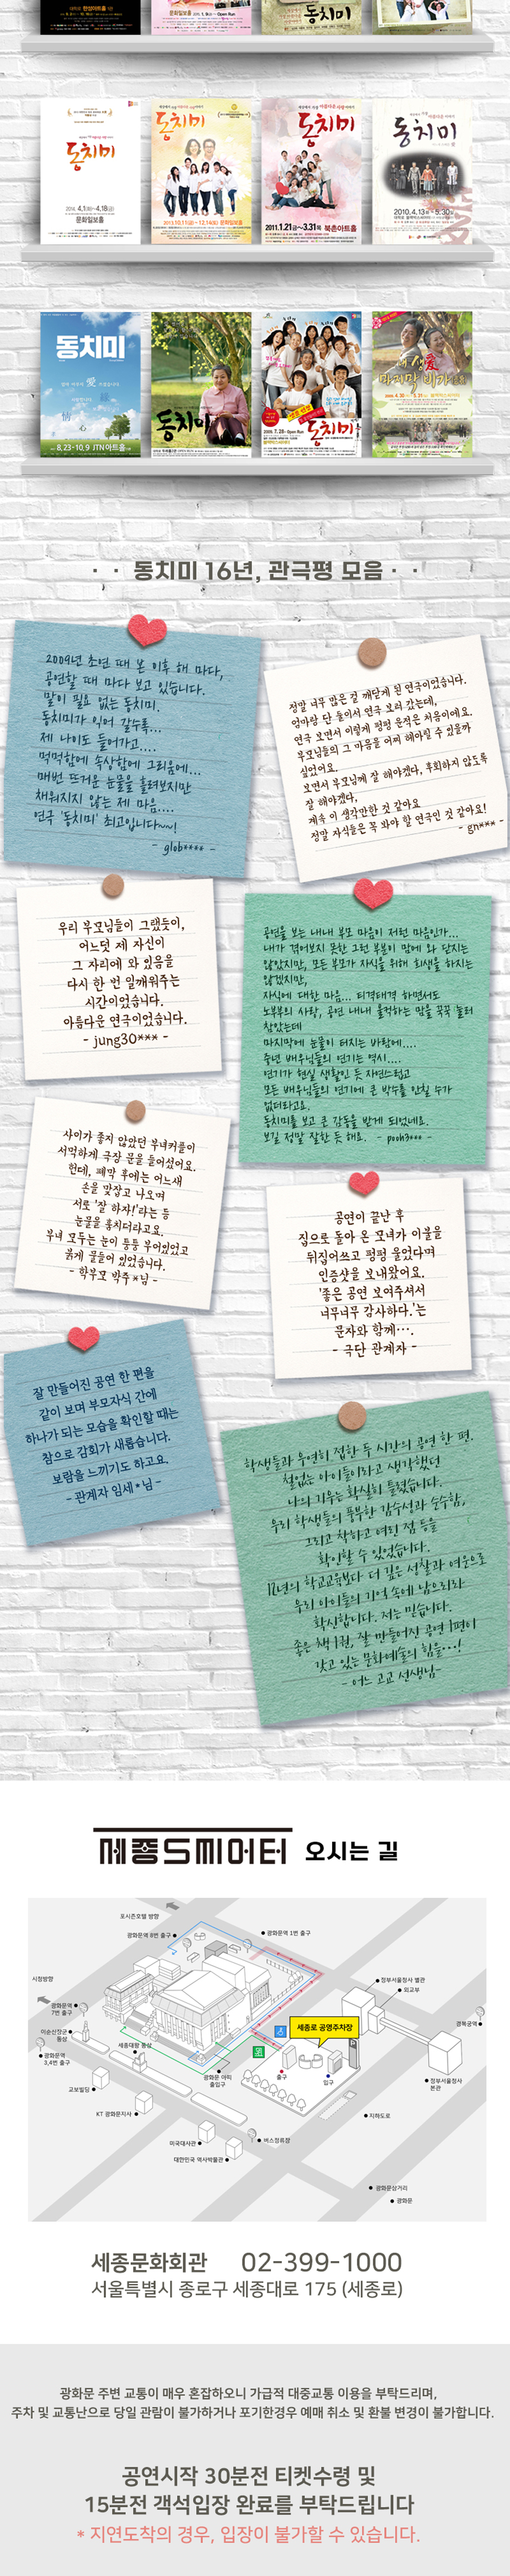 동치미
문화일보홀
동치미
2014. 4.1(화)~4.18(금)
문화일보홀
동치미
2013.10.11(금)~12.14(토) 문화일보홀
동치미
2011.1.21금~3.31목 북촌아트홀
동치미
2010.4.13화~5.30일
동치미
愛
情
心
8.23-10.9 JTN아트홀
동치미
2009. 7.28~ Open Run
동치미
내 생愛
마지막
동치미 16년, 관극평 모음
2009년 초연 때 본 이후 해 마다,
공연할 때 마다 보고 있습니다.
말이 필요 없는 동치미.
동치미가 익어 갈수록...
제 나이도 들어가고....
먹먹함에 속상함에 그리움에...
매번 뜨거운 눈물을 흘려보지만
채워지지 않는 제 마음....
연극 '동치미' 최고입니다~~!
- glob**** -
정말 너무 많은 걸 깨닫게 된 연극이었습니다.
엄마랑 단 둘이서 연극 보러 갔는데,
연극 보면서 이렇게 펑펑 운적은 처음이에요.
부모님들의 그 마음을 어찌 헤아릴 수 있을까
싶었어요.
보면서 부모님께 잘 해야겠다, 후회하지 않도록
잘 해야겠다,
계속 이 생각만한 것 같아요
정말 자식들은 꼭 봐야 할 연극인 것 같아요!
- gn*** -
우리 부모님들이 그랬듯이,
어느덧 제 자신이
그 자리에 와 있음을
다시 한 번 일깨워주는
시간이었습니다.
아름다운 연극이었습니다.
- jung30*** -
공연을 보는 내내 부모 마음이 저런 마음인가...
내가 겪어보지 못한 그런 부분이 맘에 와 닫지는
않았지만, 모든 부모가 자식을 위해 희생을 하지는
않겠지만,
자식에 대한 마음... 티격태격 하면서도
노부부의 사랑, 공연 내내 울컥하는 맘을 꾹꾹 눌러
참았는데
마지막에 눈물이 터지는 바람에....
중년 배우님들의 연기는 역시....
연기가 현실 생활인 듯 자연스럽고
모든 배우님들의 연기에 큰 박수를 안칠 수가
없더라고요.
동치미를 보고 큰 감동을 받게 되었네요.
보길 정말 잘한 듯 해요. - pooh3*** -
사이가 좋지 않았던 부녀커플이
서먹하게 극장 문을 들어섰어요.
헌데, 폐막 후에는 어느새
손을 맞잡고 나오며
서로 '잘 하자!'라는 등
눈물을 훔치더라고요.
부녀 모두는 눈이 퉁퉁 부어있었고
붉게 물들어 있었습니다.
- 학부모 박주*님 -
공연이 끝난 후
집으로 돌아 온 모녀가 이불을
뒤집어쓰고 펑펑 울었다며
인증샷을 보내왔어요.
'좋은 공연 보여주셔서
너무너무 감사하다.'는
문자와 함께….
- 극단 관계자 -
잘 만들어진 공연 한 편을
같이 보며 부모자식 간에
하나가 되는 모습을 확인할 때는
참으로 감회가 새롭습니다.
보람을 느끼기도 하고요.
- 관계자 임세*님 -
학생들과 우연히 접한 두 시간의 공연 한 편.
철없는 아이들이라고 생각했던
나의 기우는 확실히 틀렸습니다.
우리 학생들의 풍부한 감수성과 순수함,
그리고 착하고 여린 점 등을
확인할 수 있었습니다.
12년의 학교교육보다 더 깊은 성찰과 여운으로
우리 아이들의 기억 속에 남으리라
확신합니다. 저는 믿습니다.
좋은 책 1권, 잘 만들어진 공연 1편이
갖고 있는 문화예술의 힘을…!
- 어느 고교 선생님 -
세종S씨어터 오시는 길
포시즌호텔 방향
광화문역 8번 출구
광화문역 1번 출구
시청방향
광화문역
7번 출구
이순신장군
동상
광화문역
3,4번 출구
세종대왕 동상
교보빌딩
KT 광화문지사
광화문 아띠
출입구
세종로 공영주차장
출구
입구
정부서울청사 별관
외교부
경복궁역
정부서울청사
본관
지하도로
미국대사관
버스정류장
대한민국 역사박물관
광화문삼거리
광화문
세종문화회관 02-399-1000
서울특별시 종로구 세종대로 175 (세종로)
광화문 주변 교통이 매우 혼잡하오니 가급적 대중교통 이용을 부탁드리며,
주차 및 교통난으로 당일 관람이 불가하거나 포기한경우 예매 취소 및 환불 변경이 불가합니다.
공연시작 30분전 티켓수령 및
15분전 객석입장 완료를 부탁드립니다
* 지연도착의 경우, 입장이 불가할 수 있습니다.